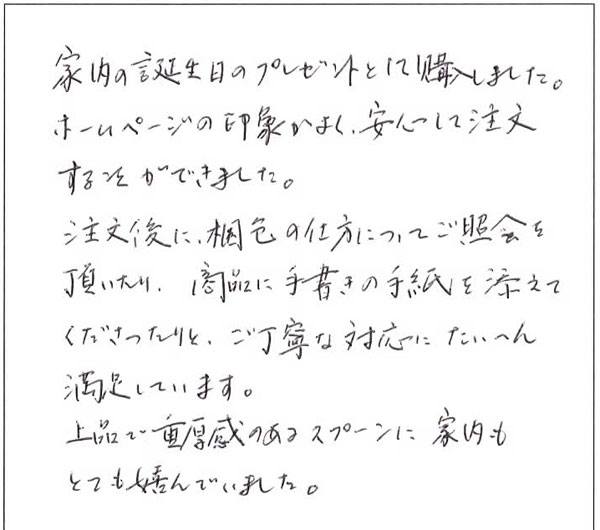 家内の誕生日のプレゼントとして購入しました。
ホームページの印象がよく、安心して注文
することができました。
注文後に、梱包の仕方についてご照会を
頂いたり、商品に手書きの手紙を添えて
くださったりと、ご丁寧な対応にたいへん
満足しています。
上品で重厚感のあるスプーンに家内も
とても嬉んでいました。